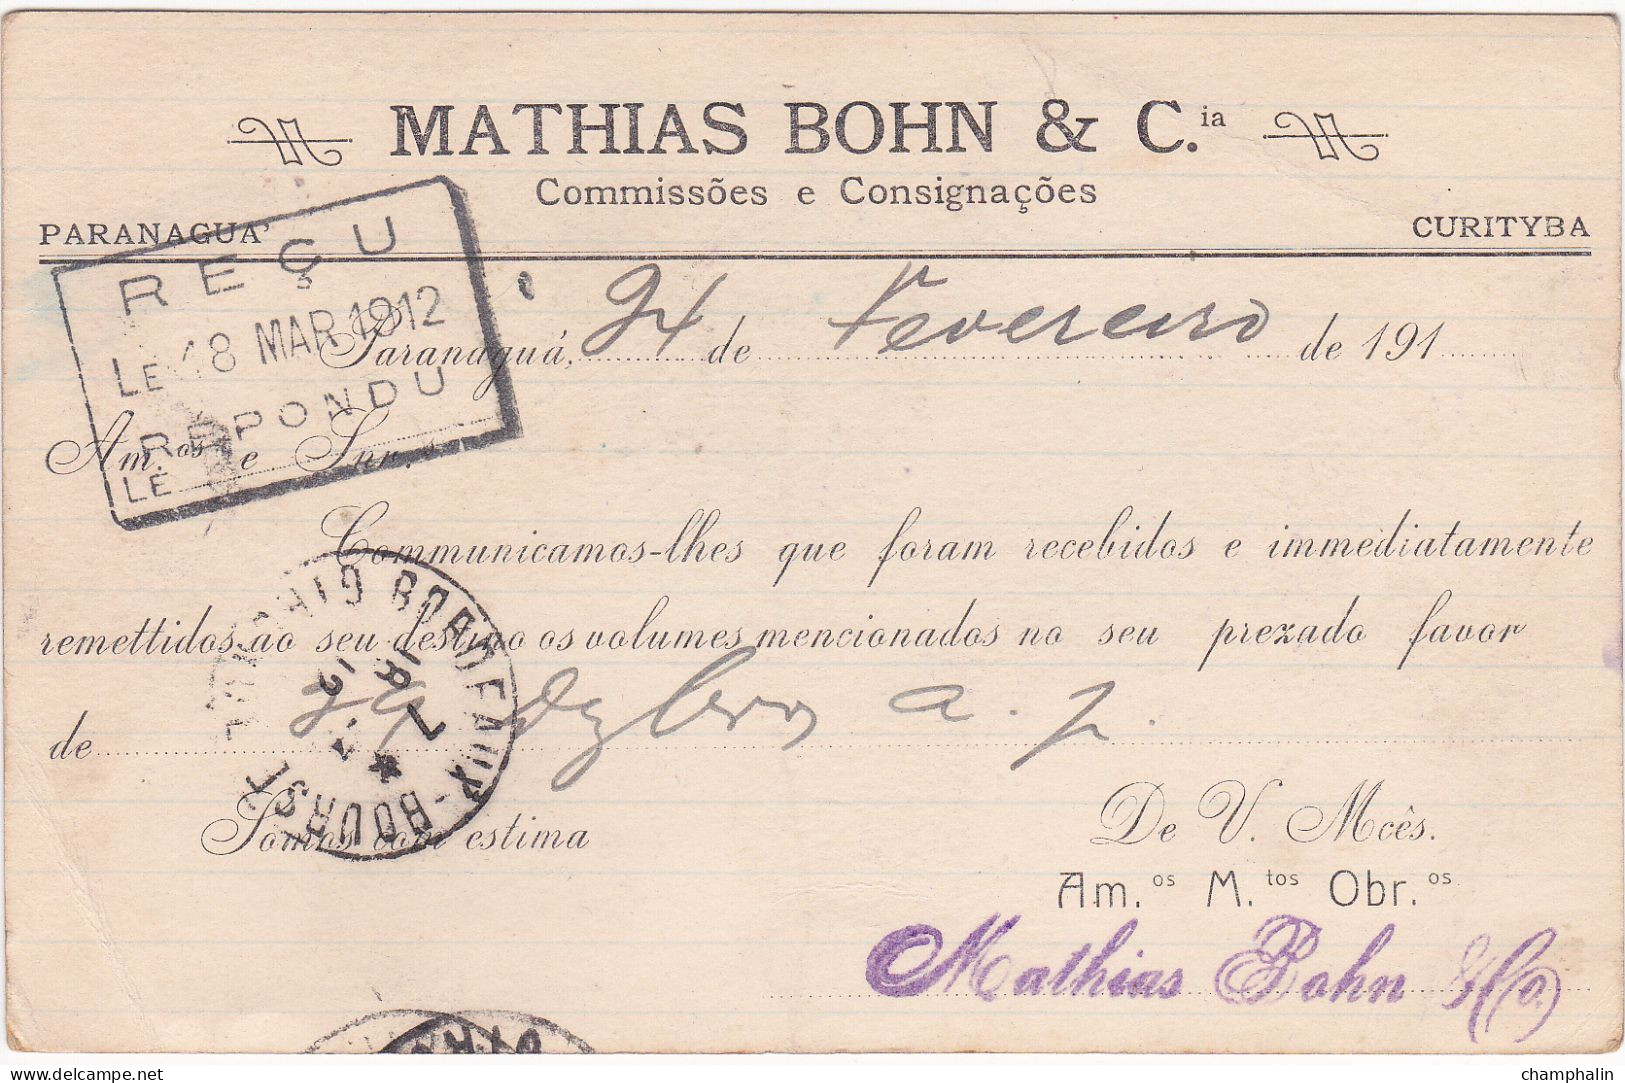 MATHIAS BOHN & C.ia
Commissões e Consignações
PARANAGUA' CURITYBA
REÇU
LE 18 MAR 1912
RÉPONDU
LE
Paranaguá, 24 de Fevereiro de 191
Am.os e Snr.s
Communicamos-lhes que foram recebidos e immediatamente
remettidos ao seu destino os volumes mencionados no seu prezado favor
de 29 Dezbro a. p.
BORDEAUX-BOURSE
Somos com estima
De V. Mcês.
Am.os M.tos Obr.os
Mathias Bohn & Co.
champhalin
www.delcampe.net